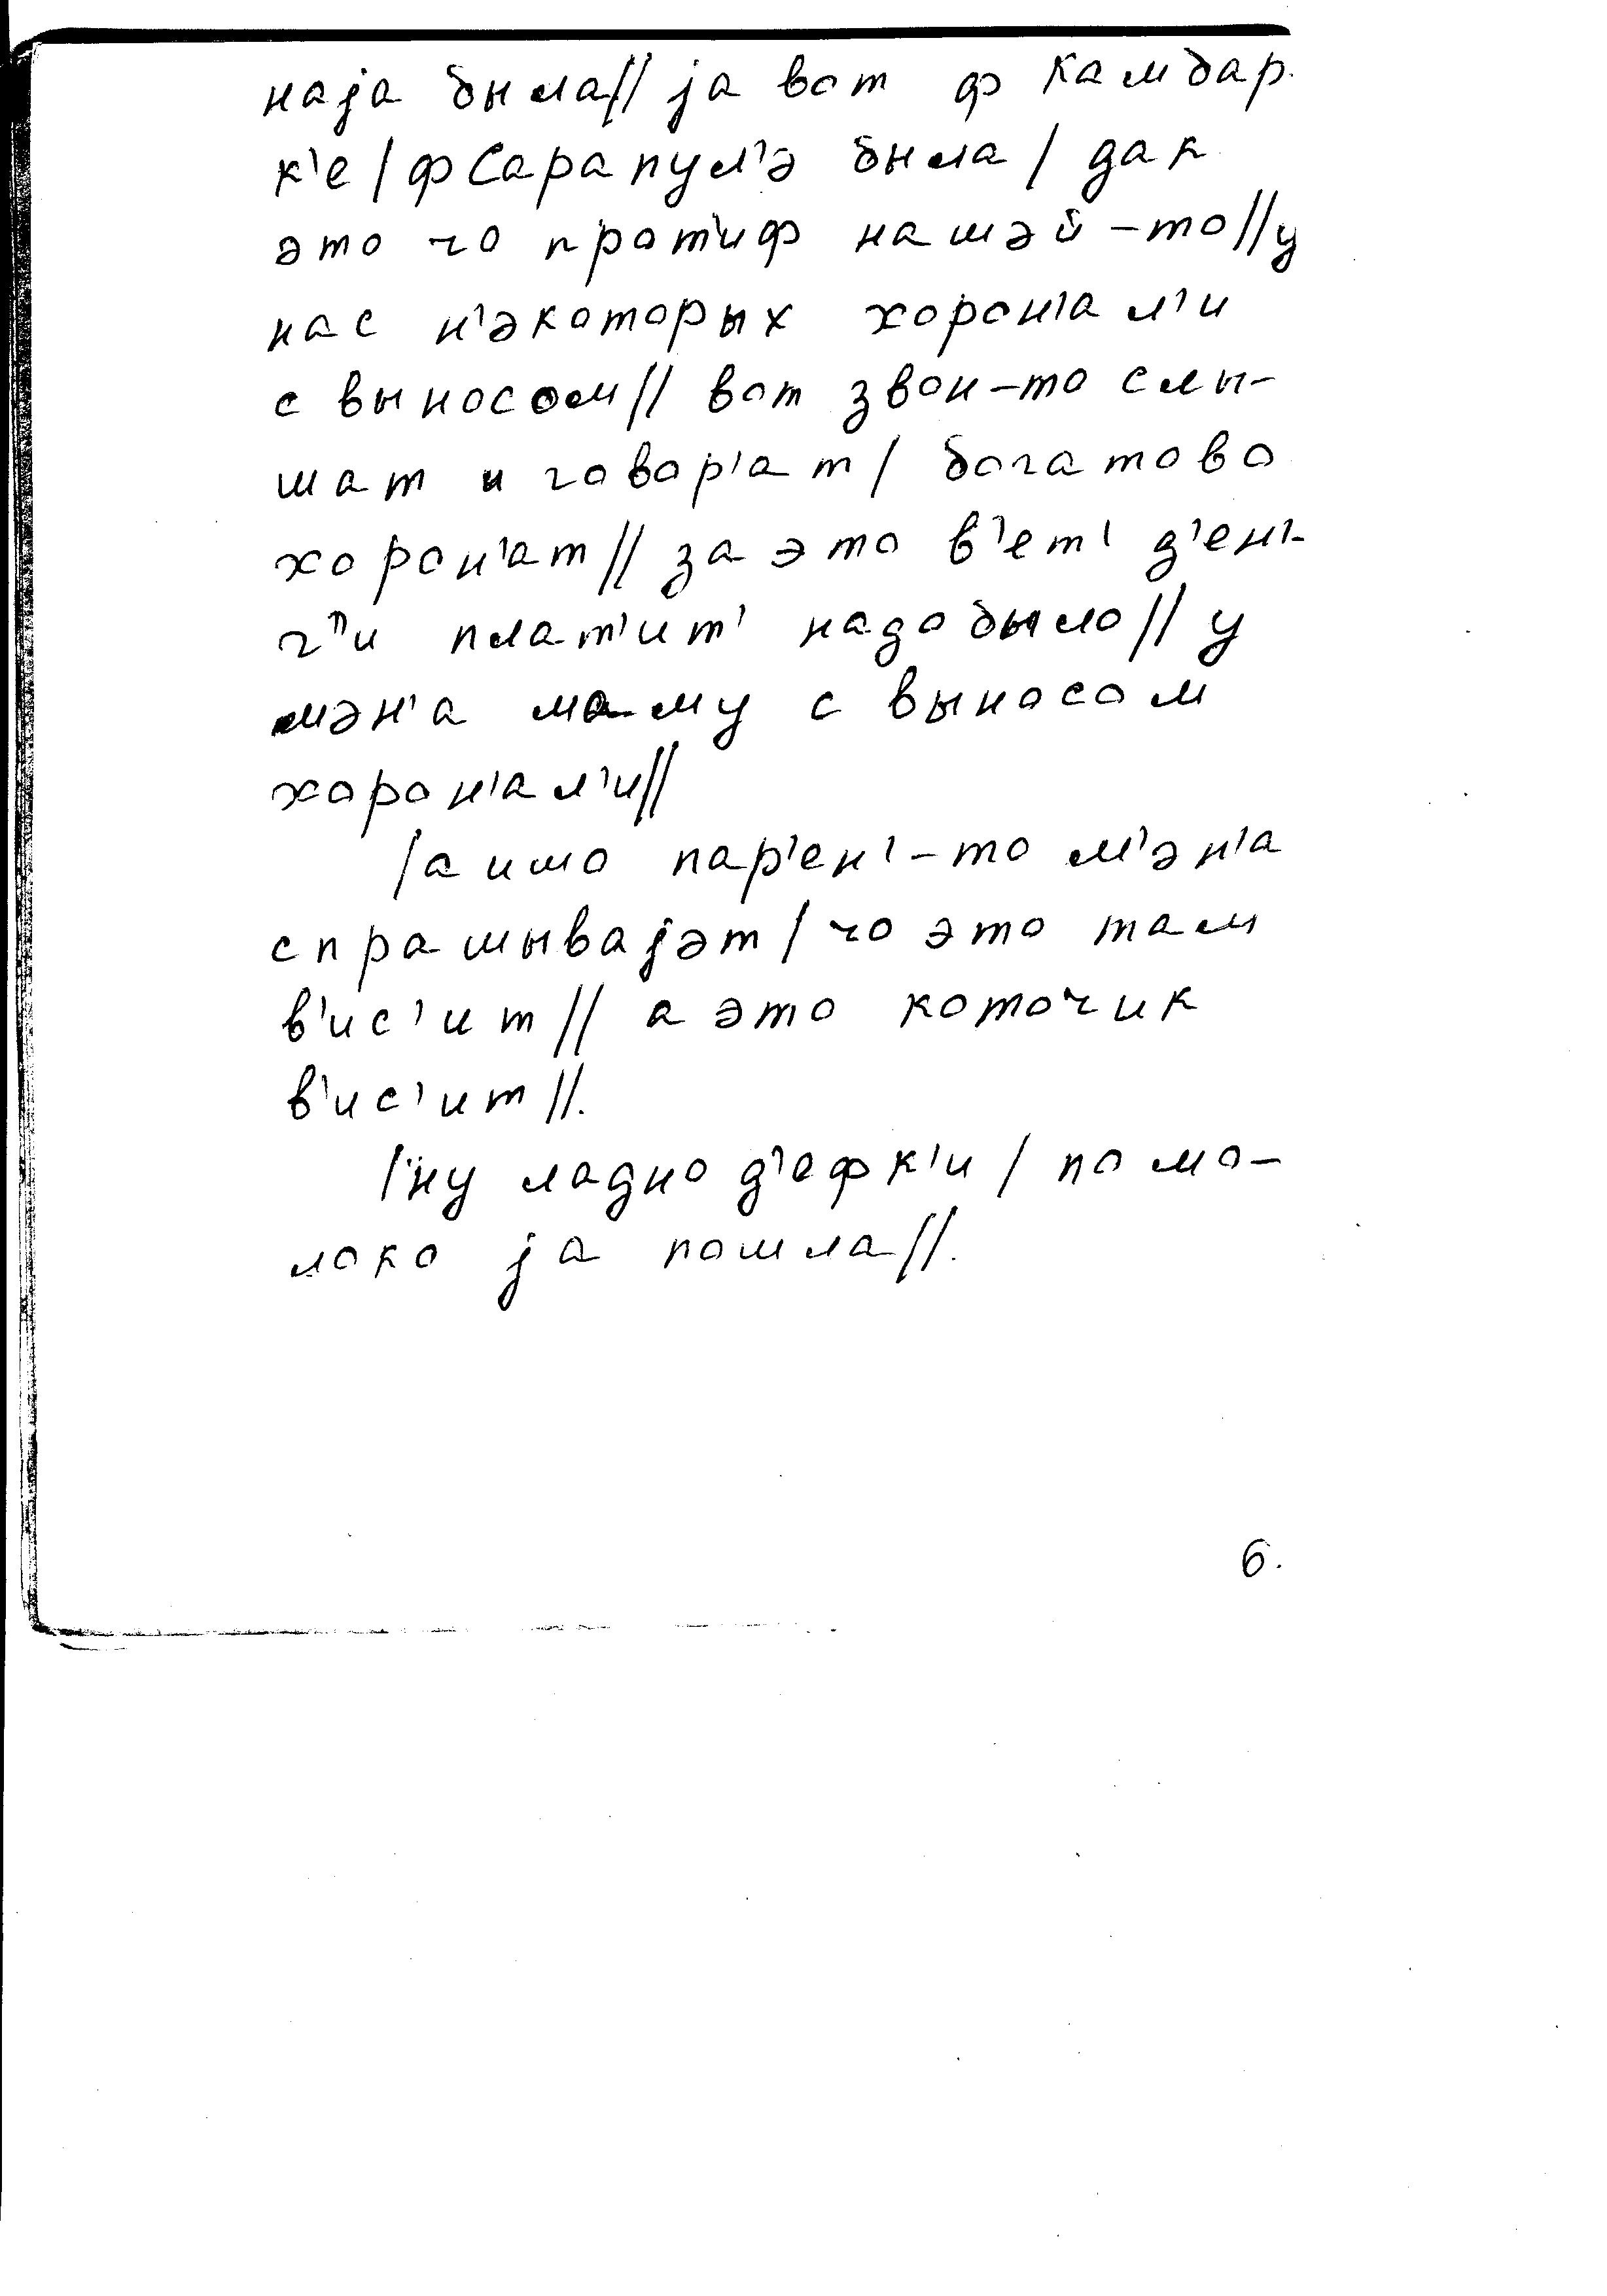 наjа была// jа вот ф Камбар-
к'е / ф Сарапул'э была / дак
это чо прот'иф нашэй-то // у
нас н'экоторых хорон'ал'и
с выносом // вот звон-то слы-
шат и говор'ат / богатово
хорон'ат // за это в'ет' д'ен'-
г"и плат'ит' надо было // у
мэн'а маму с выносом
хорон'ал'и //
/ а ишо пар'ен'-то м'эн'а
спрашываjэт / чо это там
в'ис'ит // а это коточик
в'ис'ит //.
/ ну ладно д'ефк'и / по мо-
локо jа пошла //.
6.